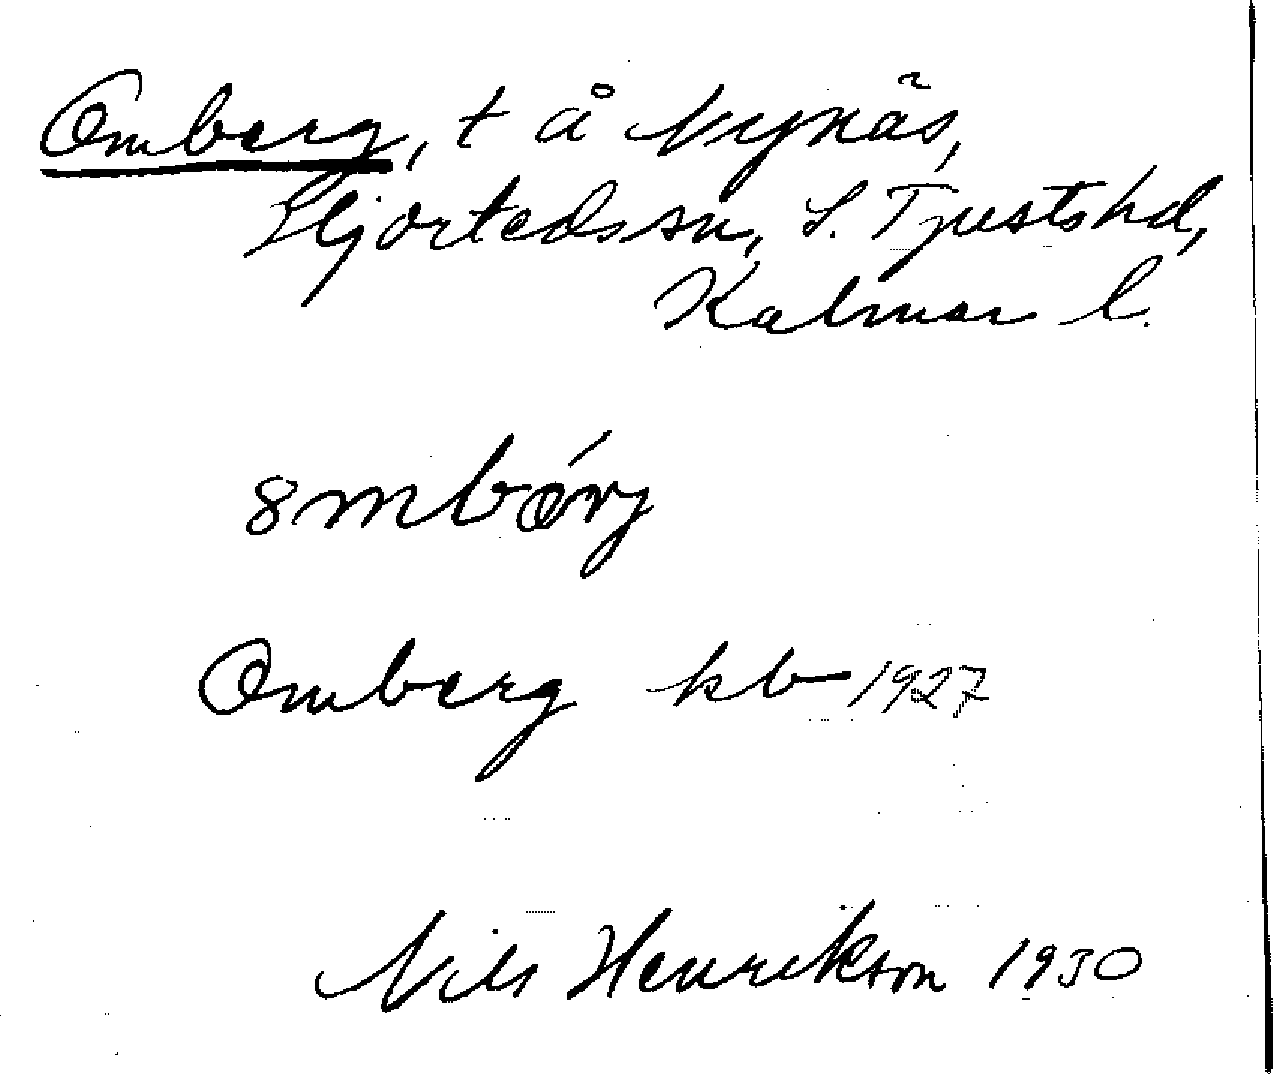 Omberg, t å Nynäs,
Hjorteds sn, S. Tjusts hd,
Kalmar l.
8mbǿrj
Omberg kb 1927
Nils Henrikson 1930